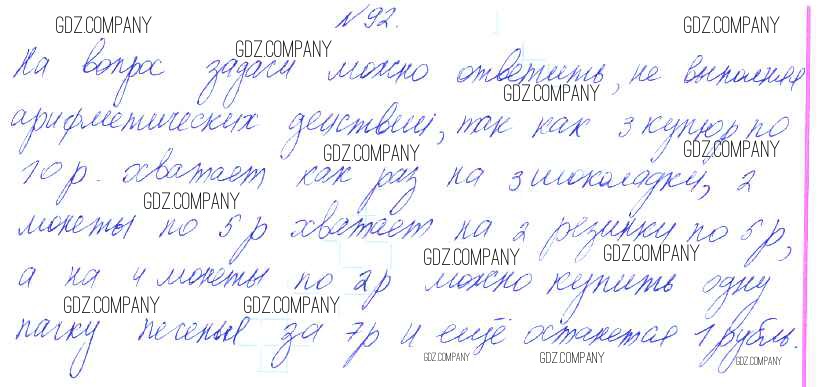 №92.
На вопрос задачи можно ответить, не выполняя
арифметических действий, так как 3 купюр по
10 р. хватает как раз на 3 шоколадки, 2
монеты по 5 р хватает на 2 резинки по 5 р,
а на 4 монеты по 2р можно купить одну
пачку печенья за 7р и ещё останется 1 рубль.
GDZ.COMPANY GDZ.COMPANY
GDZ.COMPANY
GDZ.COMPANY
GDZ.COMPANY GDZ.COMPANY
GDZ.COMPANY
GDZ.COMPANY GDZ.COMPANY
GDZ.COMPANY GDZ.COMPANY
GDZ.COMPANY GDZ.COMPANY GDZ.COMPANY